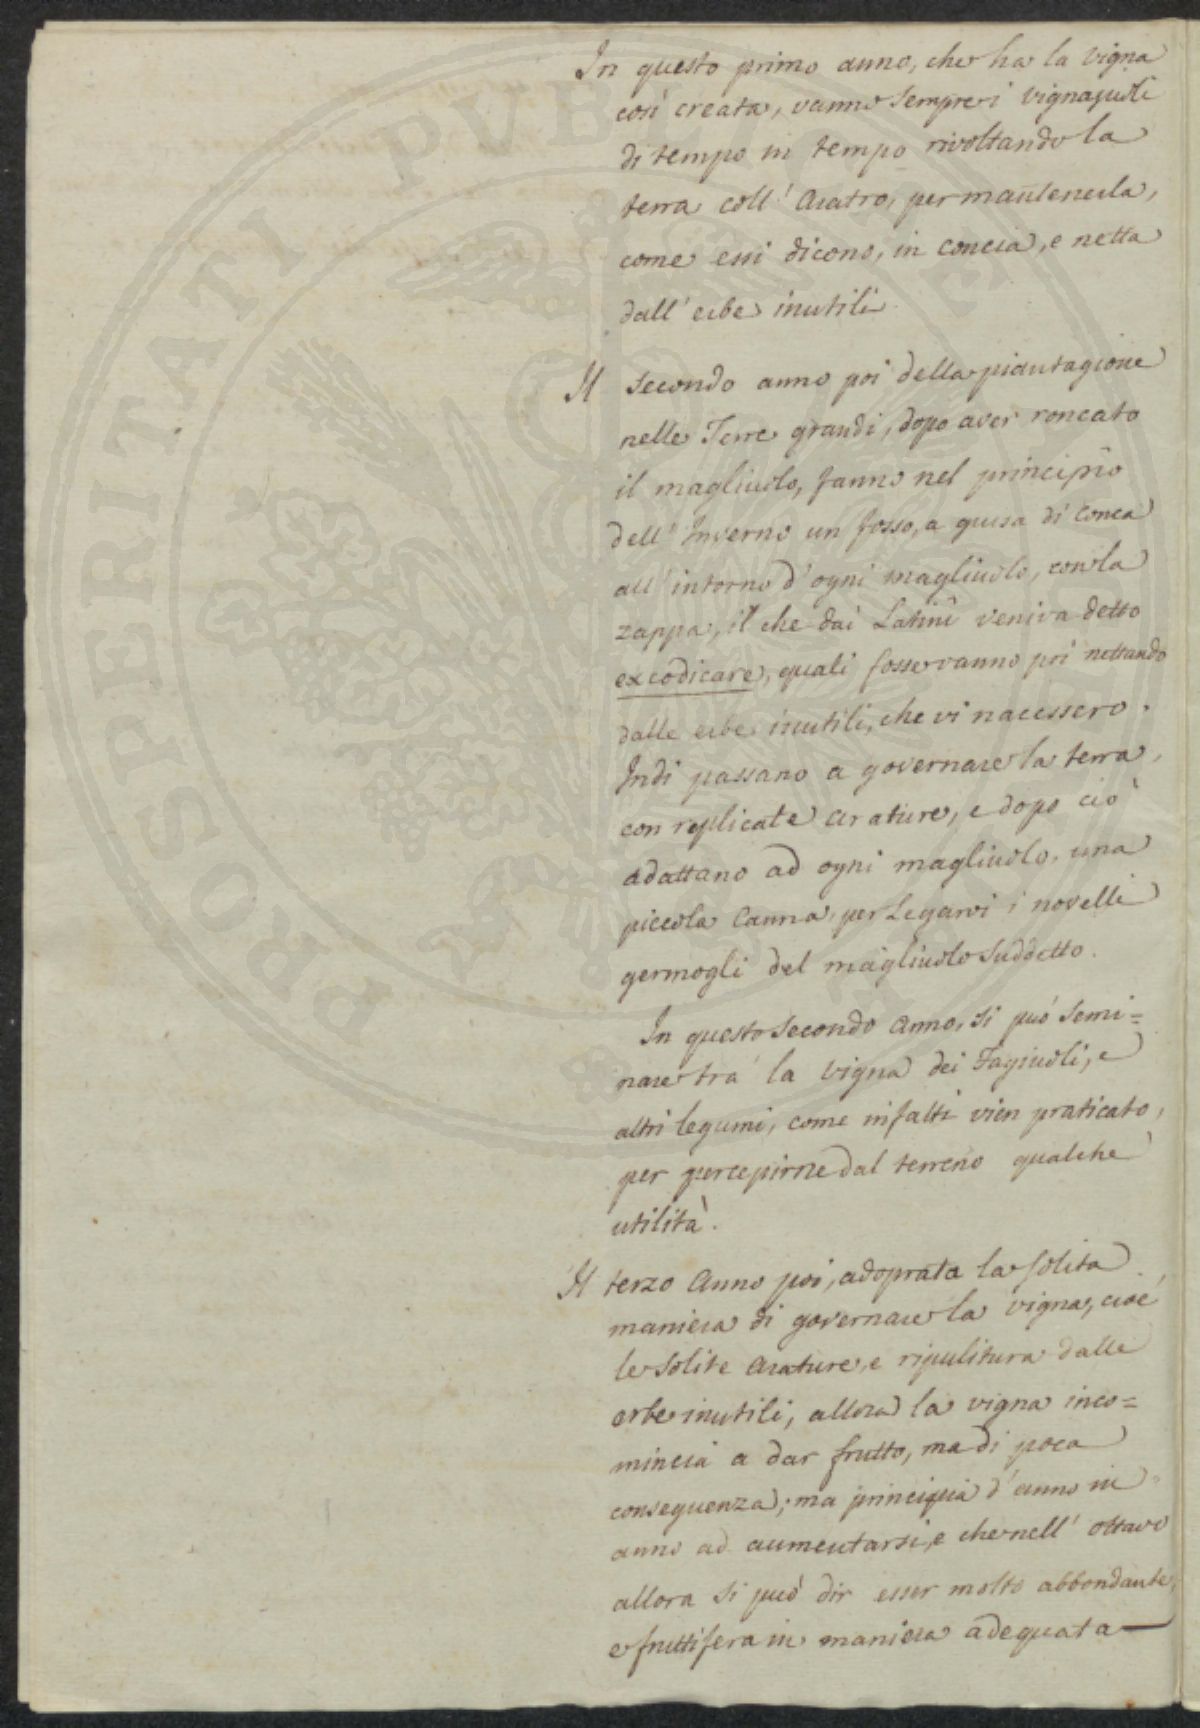 In questo primo anno, che ha la vigna
così creata, vanno sempre i vignajuoli
di tempo in tempo rivoltando la
terra coll' Aratro, per mantenerla,
come essi dicono, in concia, e netta
dall' erbe inutili
Il secondo anno poi della piantagione
nelle Terre grandi, dopo aver roncato
il magliuolo, fanno nel principio
dell' Inverno un fosso, a guisa di conca
all' intorno d' ogni magliuolo, con la
zappa, il che dai Latini veniva detto
excodicare, quali fosse vanno poi nettando
dalle erbe inutili, che vi nacessero.
Indi passano a governare la terra,
con replicate arature, e dopo ciò
adattano ad ogni magliuolo, una
piccola Canna, per Legarvi i novelli
germogli del magliuolo suddetto.
In questo secondo Anno, si può semi=
nare trà la vigna dei Fagiuoli, e
altri legumi, come infatti vien praticato,
per percepirne dal terreno qualche
utilità.
Il terzo Anno poi, adoprata la solita
maniera di governare la vigna, cioè
le solite Arature, e ripulitura dalle
erbe inutili, allora la vigna inco=
mincia a dar frutto, ma di poca
conseguenza; ma principia d' anno in
anno ad aumentarsi, e che nell' ottavo
allora si può dir esser molto abbondante,
e fruttifera in maniera adequata
PROSPERITATI PVBLICAE